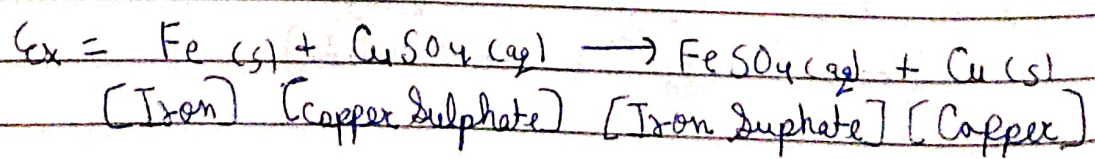 Ex = Fe (s) + CuSO4 (aq) → FeSO4 (aq) + Cu (s)
[Iron] [Copper Sulphate] [Iron Suphate] [Copper]